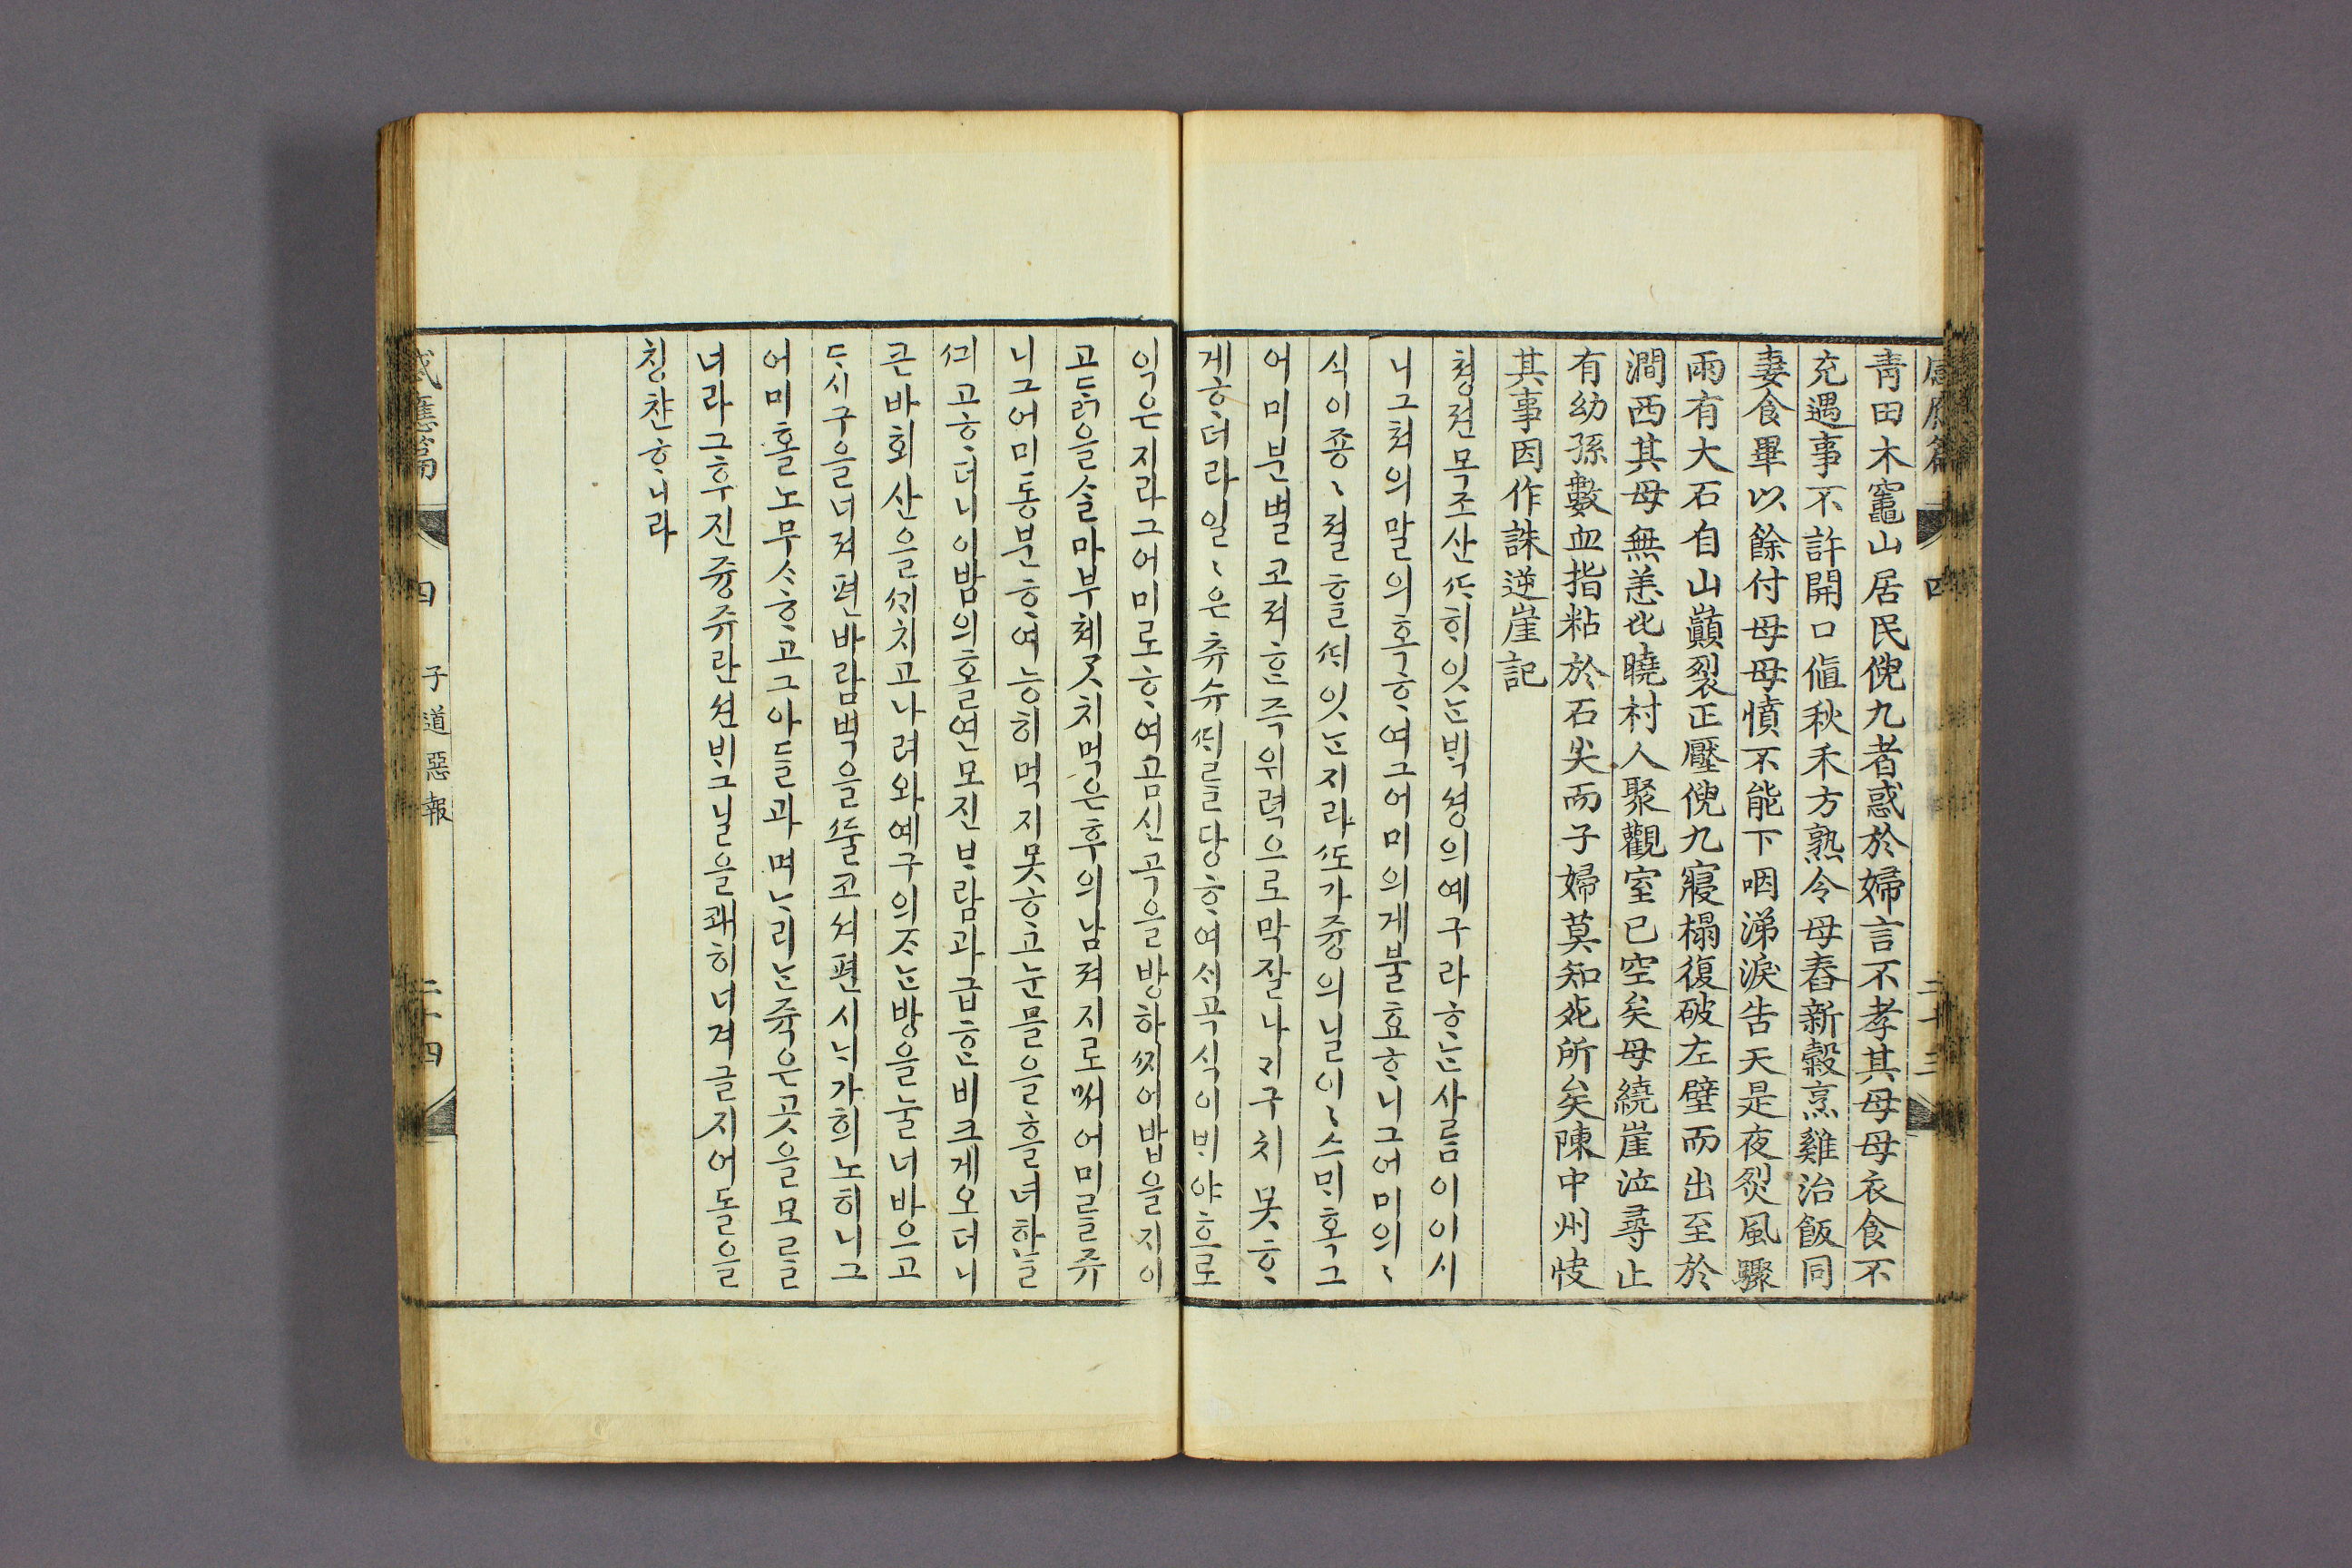 青田木竈山居民倪九者惑於婦言不孝其母母衣食不
充遇事不許開口値秋禾方熟令母舂新穀烹雞治飯同
妻食畢以餘付母母憤不能下咽涕淚告天是夜烈風驟
雨有大石自山巓裂正壓倪九寢榻復破左壁而出至於
澗西其母無恙也曉村人聚觀室已空矣母繞崖泣尋止
有幼孫數血指粘於石失而子婦莫知死所矣陳中州
其事因作誅逆崖記
쳥젼목조산ᄯᅡᄒᆡ잇ᄂᆞᆫᄇᆡᆨ셩의예구라ᄒᆞᄂᆞᆫ사ᄅᆞᆷ이이시
니그쳐의말의혹ᄒᆞ여그어미의게불효ᄒᆞ니그어미의〻
식이죵〻졀ᄒᆞᆯᄯᆡ잇ᄂᆞᆫ지라ᄯᅩ가즁의닐이〻스ᄆᆡ혹그
어미분별코져ᄒᆞᆫ즉위력으로막잘나기구치못ᄒᆞ
게ᄒᆞ더라일〻은츄슈ᄯᆡᄅᆞᆯ당ᄒᆞ여ᄉᆡ곡식이ᄇᆡ야흐로
익은지라그어미로ᄒᆞ여곰신곡을방하ᄶᅵ어밥을지이
고ᄃᆞᆰ을ᄉᆞᆯ마부쳬ᄀᆞᆺ치먹은후의남져지로ᄡᅥ어미ᄅᆞᆯ쥬
니그어미통분ᄒᆞ여능히먹지못ᄒᆞ고눈믈을흘녀하ᄂᆞᆯ
ᄭᅴ고ᄒᆞ더니이밤의홀연모진ᄇᆞ람과급ᄒᆞᆫ비크게오더니
큰바회산을ᄭᆡ치고나려와예구의ᄌᆞᄂᆞᆫ방을눌너바으고
ᄃᆞ시구을너져편바람벽을ᄯᅮᆯ고셔편시ᄂᆡ가희노히니그
어미홀노무ᄉᆞᄒᆞ고그아ᄃᆞᆯ과며ᄂᆞ리ᄂᆞᆫ죽은곳을모ᄅᆞᆯ
너라그후진즁쥬란션ᄇᆡ그닐을쾌히녀겨글지어돌을
칭찬ᄒᆞ니라
感應篇 四 子道惡報 二十四